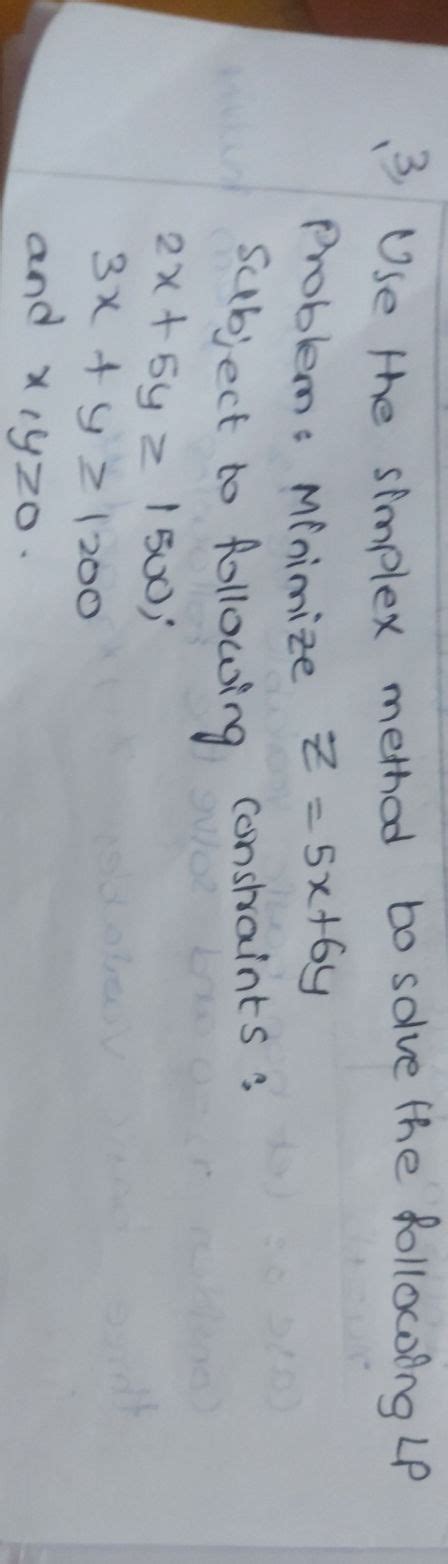 3, Use the simplex method to solve the following LP
Problem: Minimize Z = 5x+6y
Subject to following constraints:
2x + 5y ≥ 1500;
3x + y ≥ 1200
and x,y≥0.